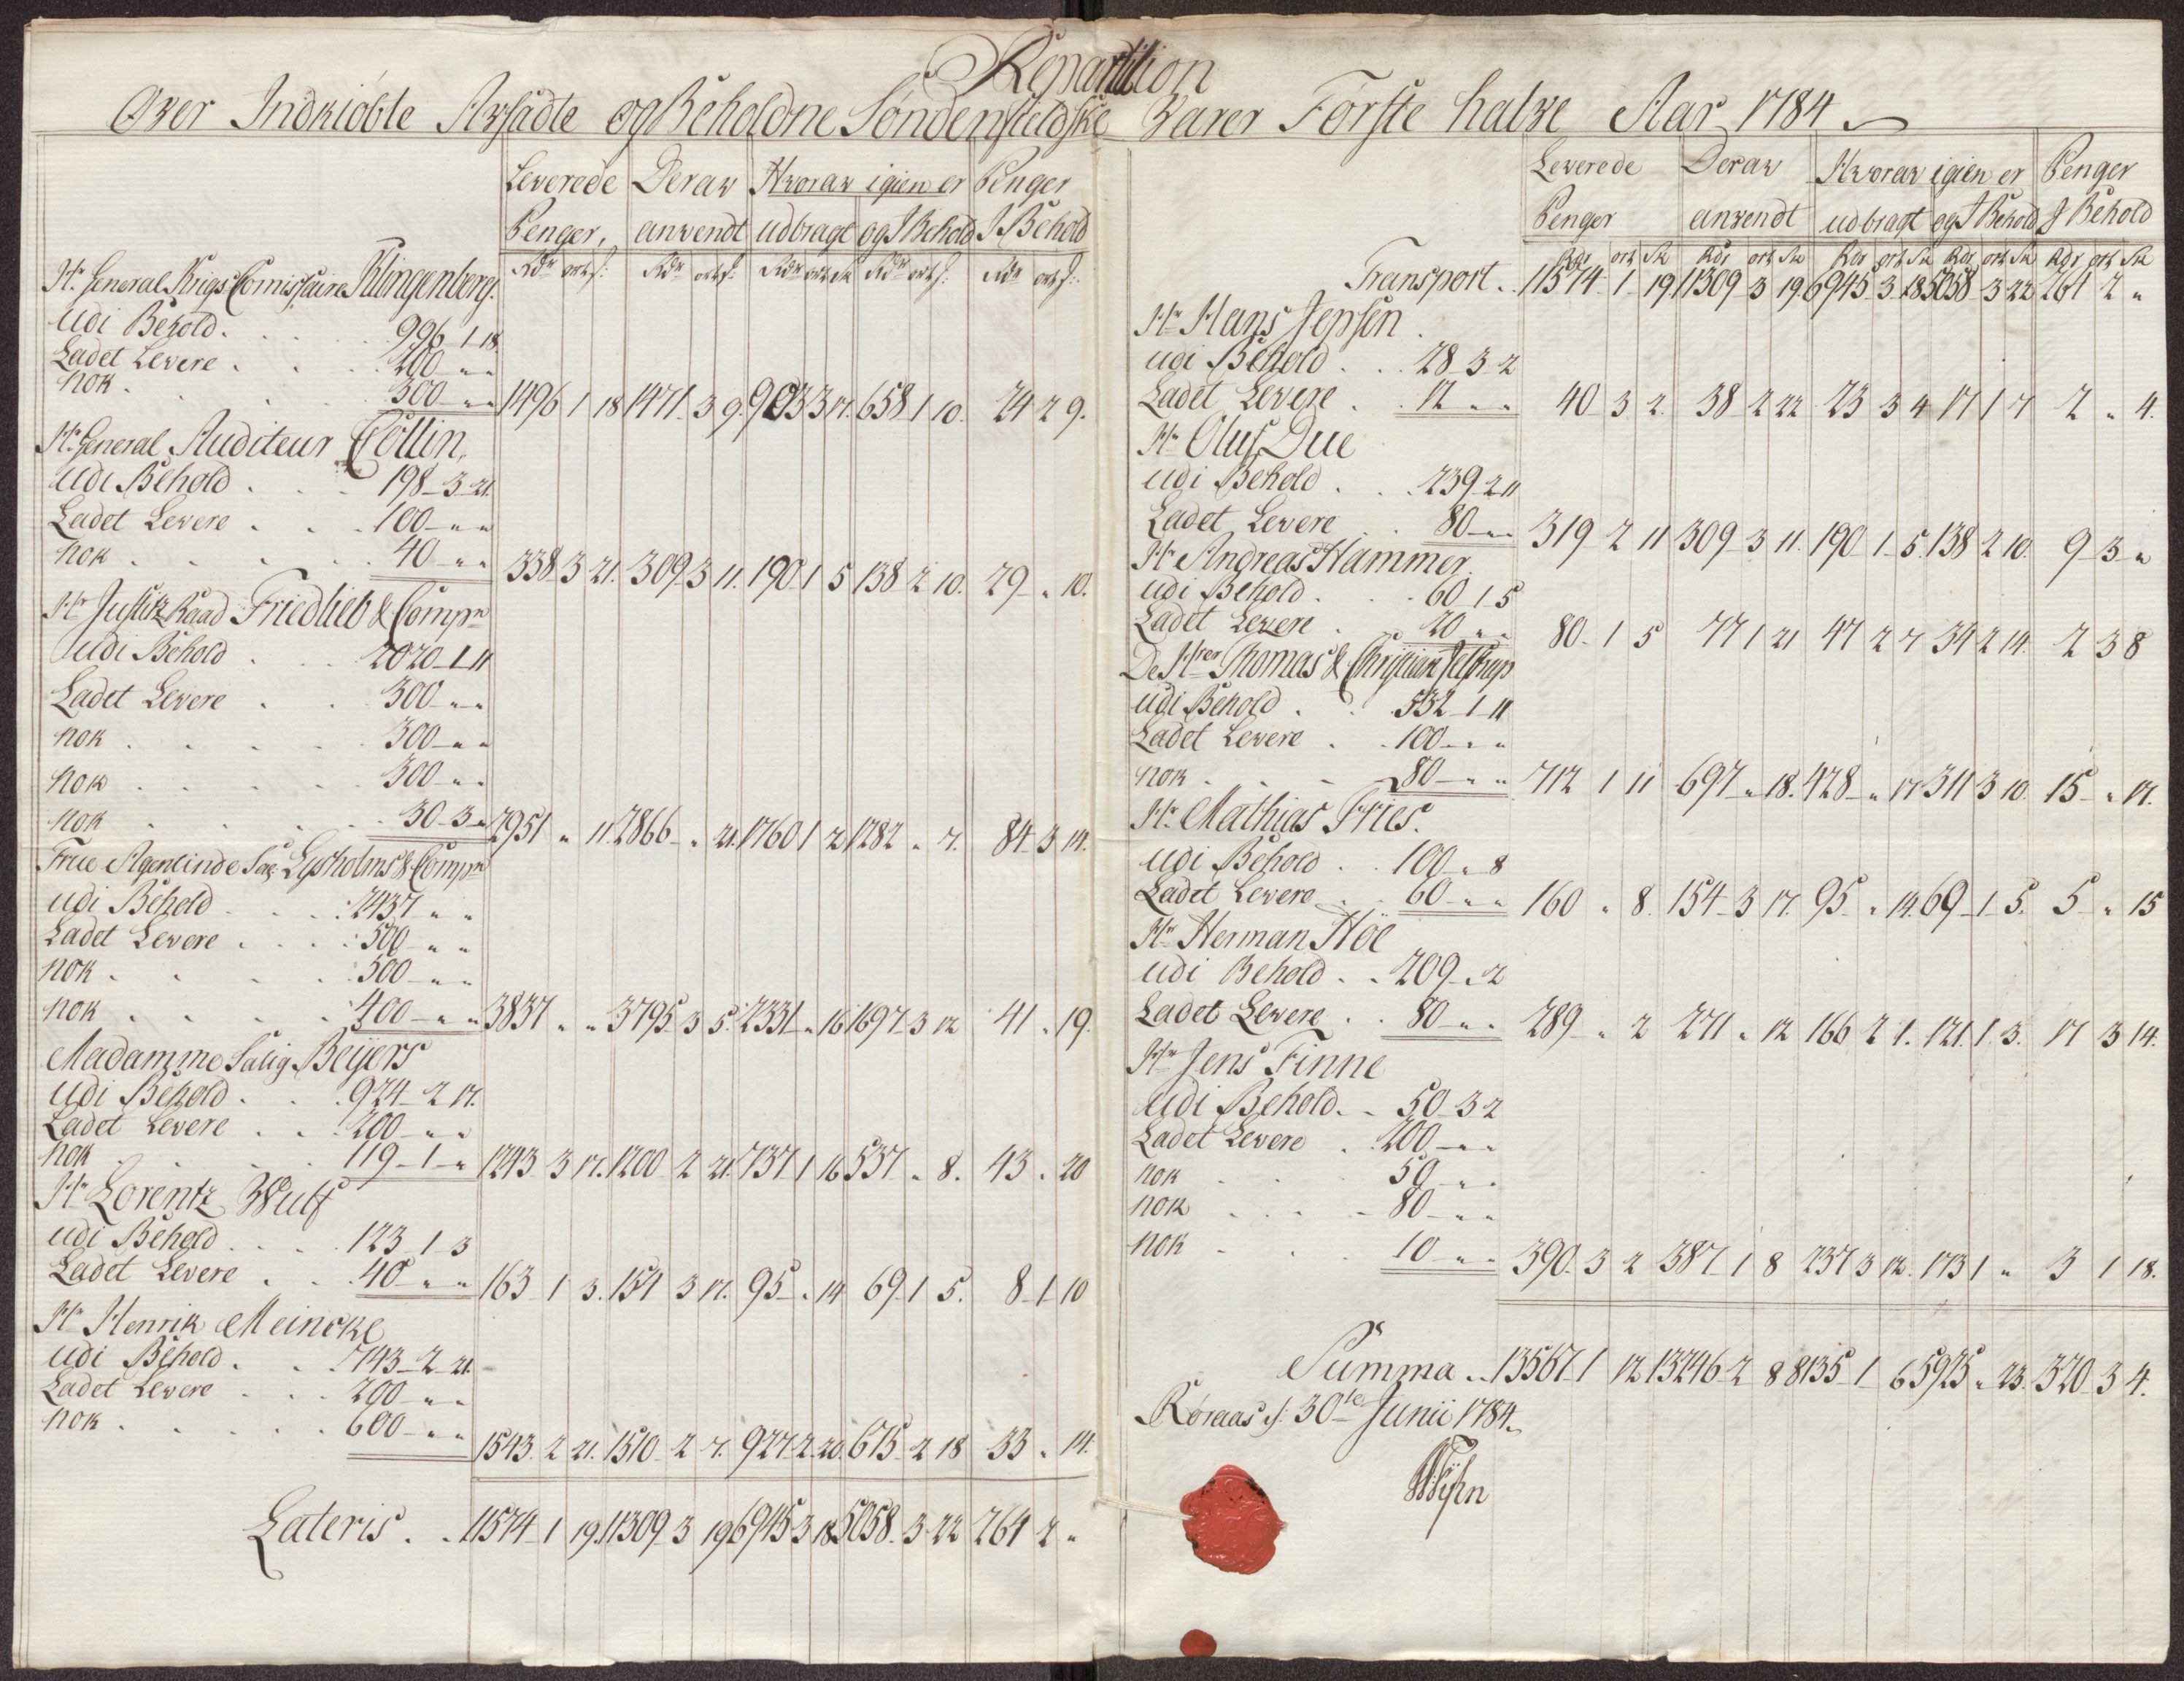 Repartition
Over Indkiöbte Afsadte og Beholdne Söndenfieldske Varer Förste halve Aar 1784
Leverede Derav Hvorav igien er Penger
Penger, anvendt udbragt og I Behold I Behold
Rdr ort s: Rdr ort s: Rdr ort sk Rdr ort s: Rdr ort s:
Hr. General Krigs Comissaire Klingenberg.
Udi Behold . . . 996 - 1 - 18.
Ladet Levere . . . 200 - " "
nok . . . 300 - " " 1496 1 18 1471 - 3 9. 903 3 17. 658 1 10. 24 2 9.
Hr. General Auditeur Collin,
Udi Behold . . . 198 - 3 - 21.
Ladet Levere . . . 100 - " "
nok . . . 40 - " " 338 3 21. 309 3 11. 190 1 5 138 2 10. 29 " 10.
Hr Justitz Raad Friedlieb & Compn
Udi Behold . . . 2020 - 1 - 11
Ladet Levere . . . 300 - " "
nok . . . 300 - " "
nok . . . 300 - " "
nok . . . 30 - 3 - " 2951 " 11. 2866 - " 21. 1760 1 21 1282 " 7. 84 3 14.
Frue Agentinde Sal: Lysholms & Compn
Udi Behold . . . 2437 " "
Ladet Levere . . . 500 - " "
nok . . . 500 - " "
nok . . . 400 - " " 3837 " " 3795 3 5. 2331 " 16 1697 3 12 41 " 19.
Madamme Salig Beÿers
Udi Behold . . . 924 - 2 17.
Ladet Levere . . . 200 - " "
nok . . . 119 - 1 - " 1243 3 17. 1200 2 21. 737 1 16 537 " 8. 43 " 20
Hr Lorentz Wulf
Udi Behold . . . 123 - 1 - 3
Ladet Levere . . . 40 " " 163 1 3. 154 3 17. 95 " 14 69 1 5. 8 1 10
Hr Henrik Meincke
Udi Behold . . . 743 - 2 - 21.
Ladet Levere . . . 200 - " "
nok . . . 600 - " " 1543 2 21. 1510 2 7. 927 2 20. 675 2 18 33 " 14.
Lateris . . 11574 1 19. 11309 3 19 6945 3 18 5058. 3 22 264 2 "
Leverede Derav Hvorav igien er Penger
Penger anvendt udbragt og I Behold I Behold
Rdr ort Sk Rdr ort Sk Rdr ort Sk Rdr ort Sk Rdr ort Sk
Transport . . 11574 - 1 - 19 11309 3 19. 6945 3 18 5058 3 22 264 2 "
Hr Hans Jepsen
udi Behold . . . 28 - 3 - 2
Ladet Levere . . 12 " " 40 3 2. 38 2 22 23 3 4 17 1 7 2 " 4.
Hr Oluf Due
udi Behold . . . 239 - 2 11
Ladet Levere 80 - " " 319 2 11 309 - 3 11. 190 1 - 5. 138 2 10. 9 3 - "
Hr Andreas Hammer.
udi Behold . . . 60 1 5
Ladet Levere . 20 " " 80 - 1 5 77 1 21 47 2 7 34 2 14. 2 3 8
De Hrer Thomas & Christian Jelstrup
udi Behold . . . 532 - 1 - 11
Ladet Levere . . 100 - " "
nok . . . 80 - " " 712 1 11 697 " 18. 428 - " 17 311 3 10. 15 - " 17.
Hr. Mathias Fries.
udi Behold . . 100 " 8
Ladet Levere . . 60 - " " 160 " 8. 154 - 3 17. 95 " 14. 69 - 1 5. 5 " 15
Hr Herman Höe
udi Behold . . 209 " 2
Ladet Levere . . 80 - " " 289 - " 2 271 " 12 166 2 1. 121. 1 3. 17 3 14.
Hr Jens Finne
Udi Behold . . 50 - 3 - 2
Ladet Levere . 200 - " "
nok . . . 50 - " "
nok . . . 80 - " "
nok . . . 10 - " " 390 - 3 2 387 1 8 237 3 12. 173 1 " 3 1 18.
Summa . . 13567 1 12 13246 2 8 8135 1 6 5925 " 23. 320 3 4.
Röraas d: 30te Junii 1784